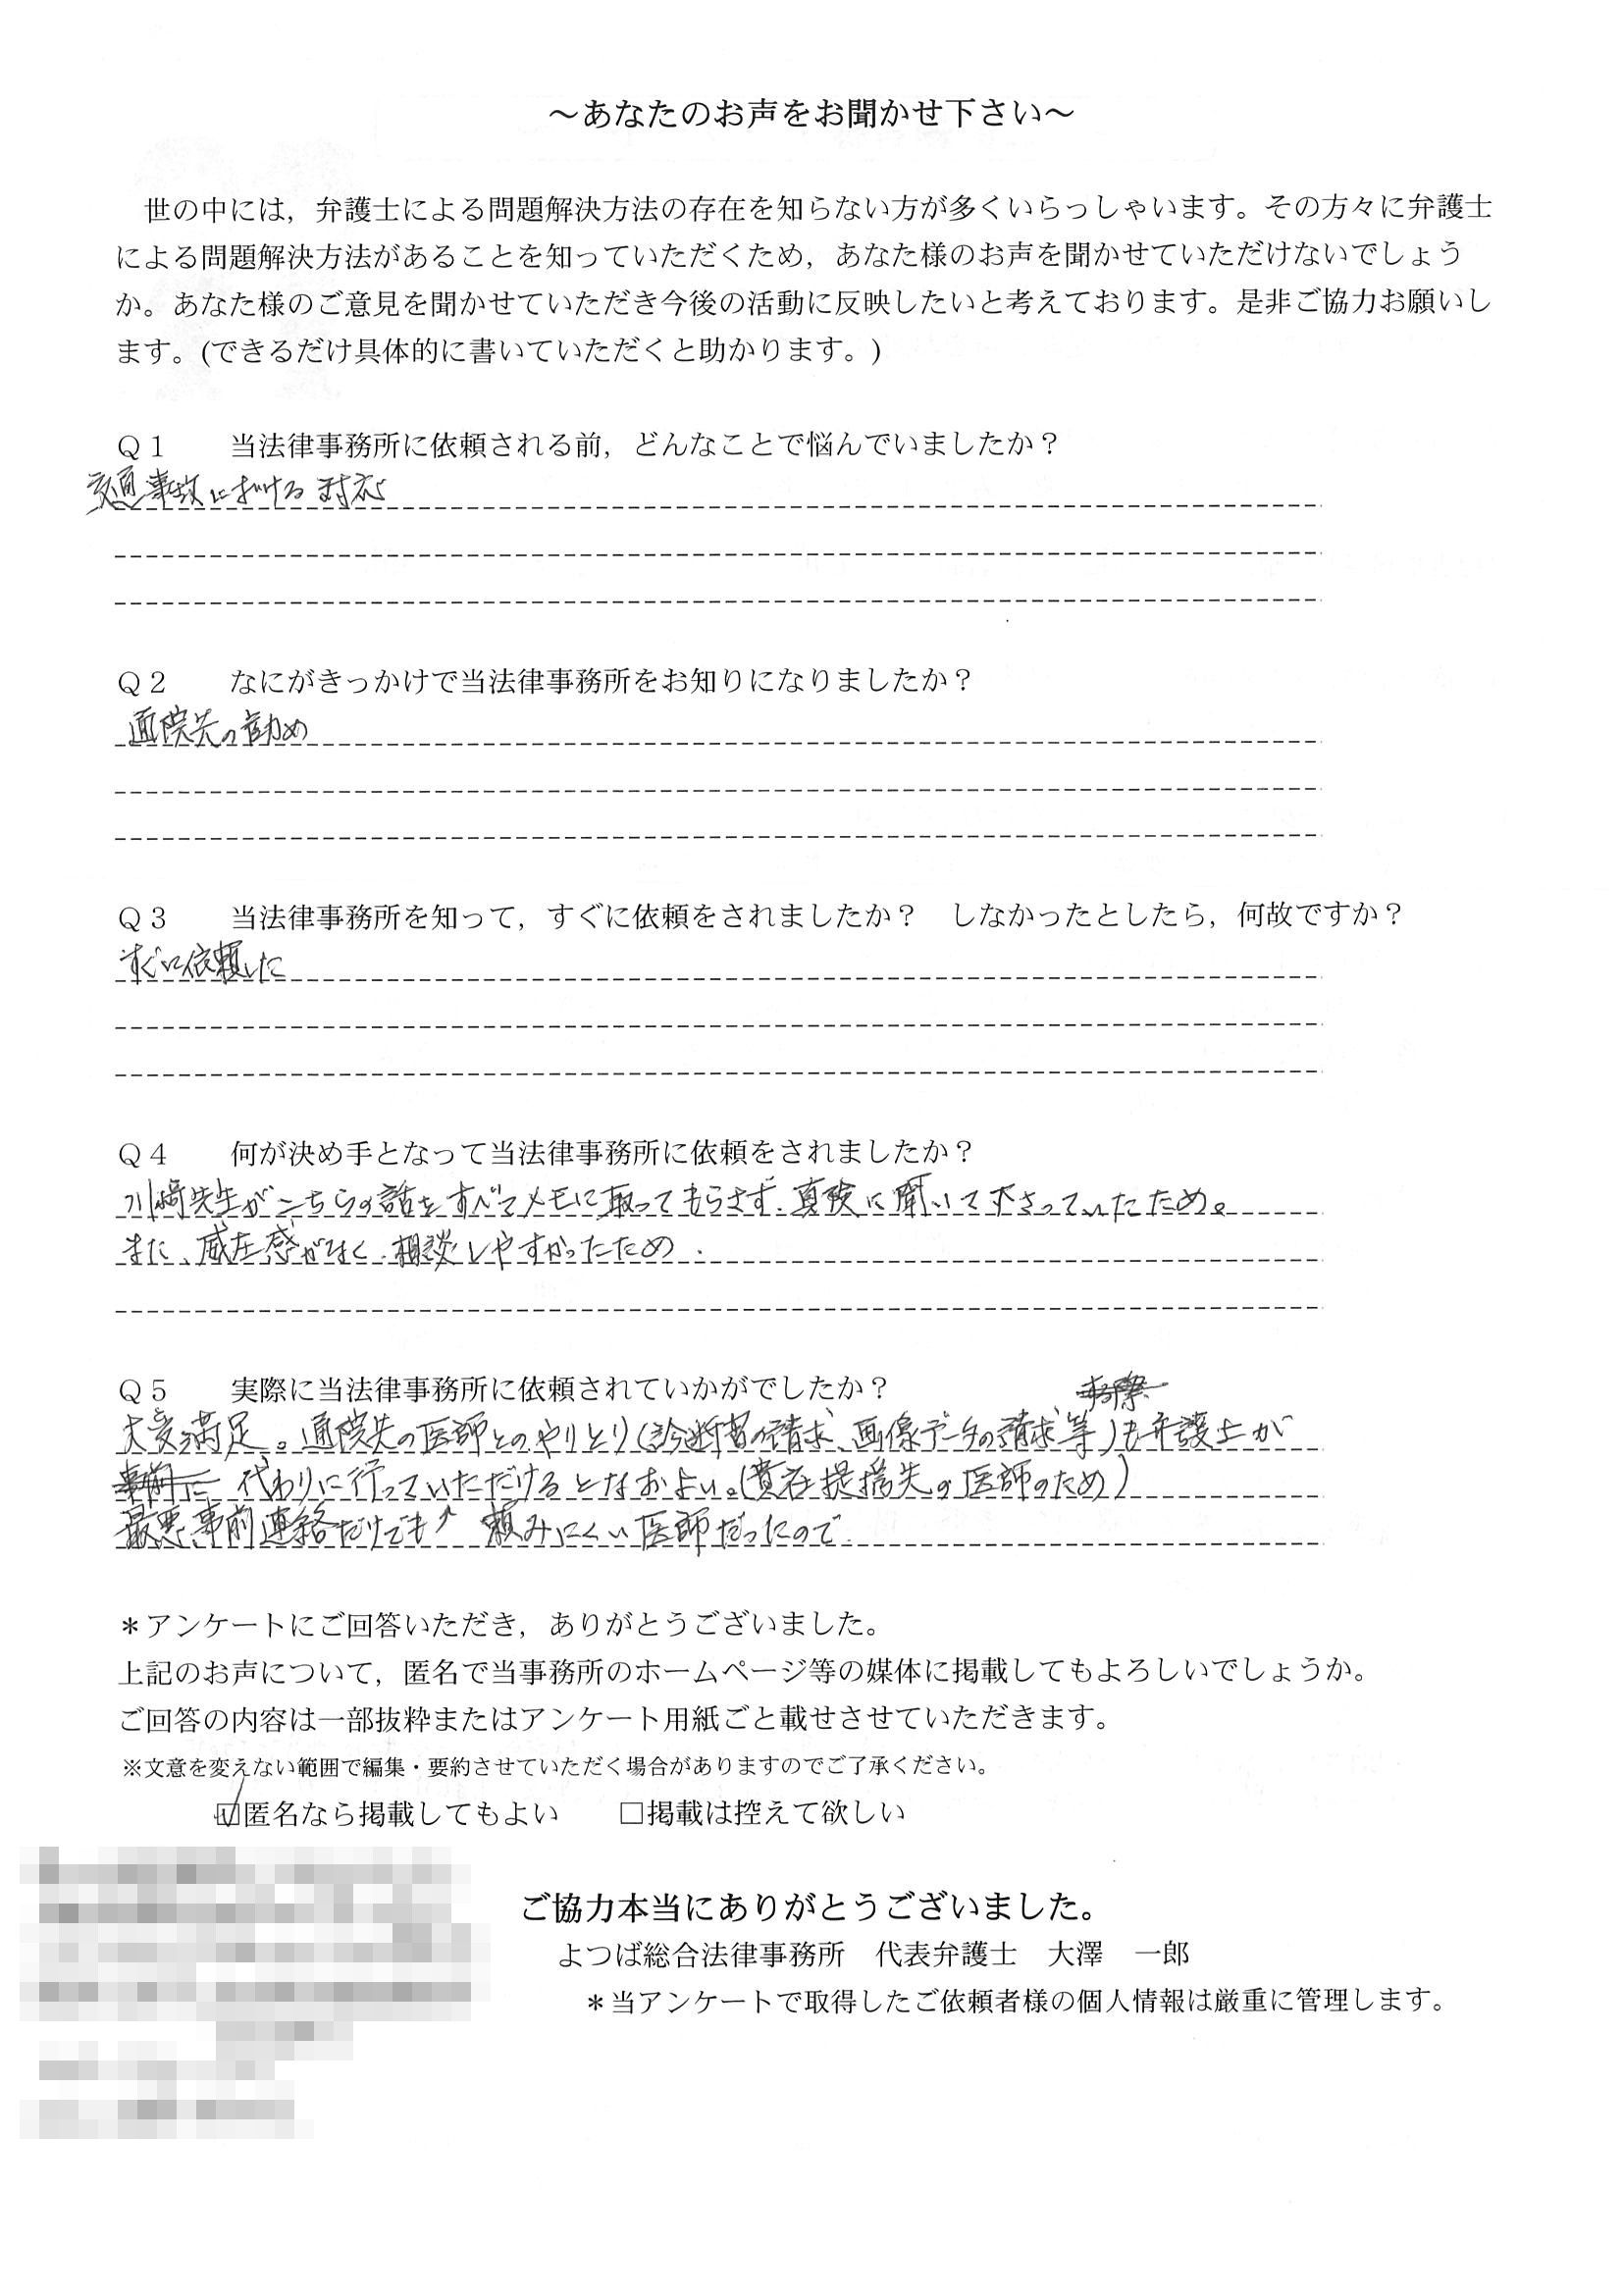 ～あなたのお声をお聞かせ下さい～
世の中には，弁護士による問題解決方法の存在を知らない方が多くいらっしゃいます。その方々に弁護士
による問題解決方法があることを知っていただくため，あなた様のお声を聞かせていただけないでしょう
か。あなた様のご意見を聞かせていただき今後の活動に反映したいと考えております。是非ご協力お願いし
ます。(できるだけ具体的に書いていただくと助かります。)
Ｑ１　　当法律事務所に依頼される前，どんなことで悩んでいましたか？
交通事故における対応
Ｑ２　　なにがきっかけで当法律事務所をお知りになりましたか？
通院先の勧め
Ｑ３　　当法律事務所を知って，すぐに依頼をされましたか？　しなかったとしたら，何故ですか？
すぐに依頼した
Ｑ４　　何が決め手となって当法律事務所に依頼をされましたか？
川﨑先生がこちらの話をすべてメモに取ってもらさず、真険に聞いて下さっていたため。
また、威圧感がなく、相談しやすかったため．
Ｑ５　　実際に当法律事務所に依頼されていかがでしたか？
大変満足。通院先の医師とのやりとり(診断書の請求、画像データの請求等)も弁護士が
事前に 代わりに行っていただけるとなおよい。(貴在提携先の医師のため)
最悪、事前連絡だけでも 頼みにくい医師だったので．
＊アンケートにご回答いただき，ありがとうございました。
上記のお声について，匿名で当事務所のホームページ等の媒体に掲載してもよろしいでしょうか。
ご回答の内容は一部抜粋またはアンケート用紙ごと載せさせていただきます。
※文意を変えない範囲で編集・要約させていただく場合がありますのでご了承ください。
☑匿名なら掲載してもよい　　□掲載は控えて欲しい
ご協力本当にありがとうございました。
よつば総合法律事務所　代表弁護士　大澤　一郎
＊当アンケートで取得したご依頼者様の個人情報は厳重に管理します。